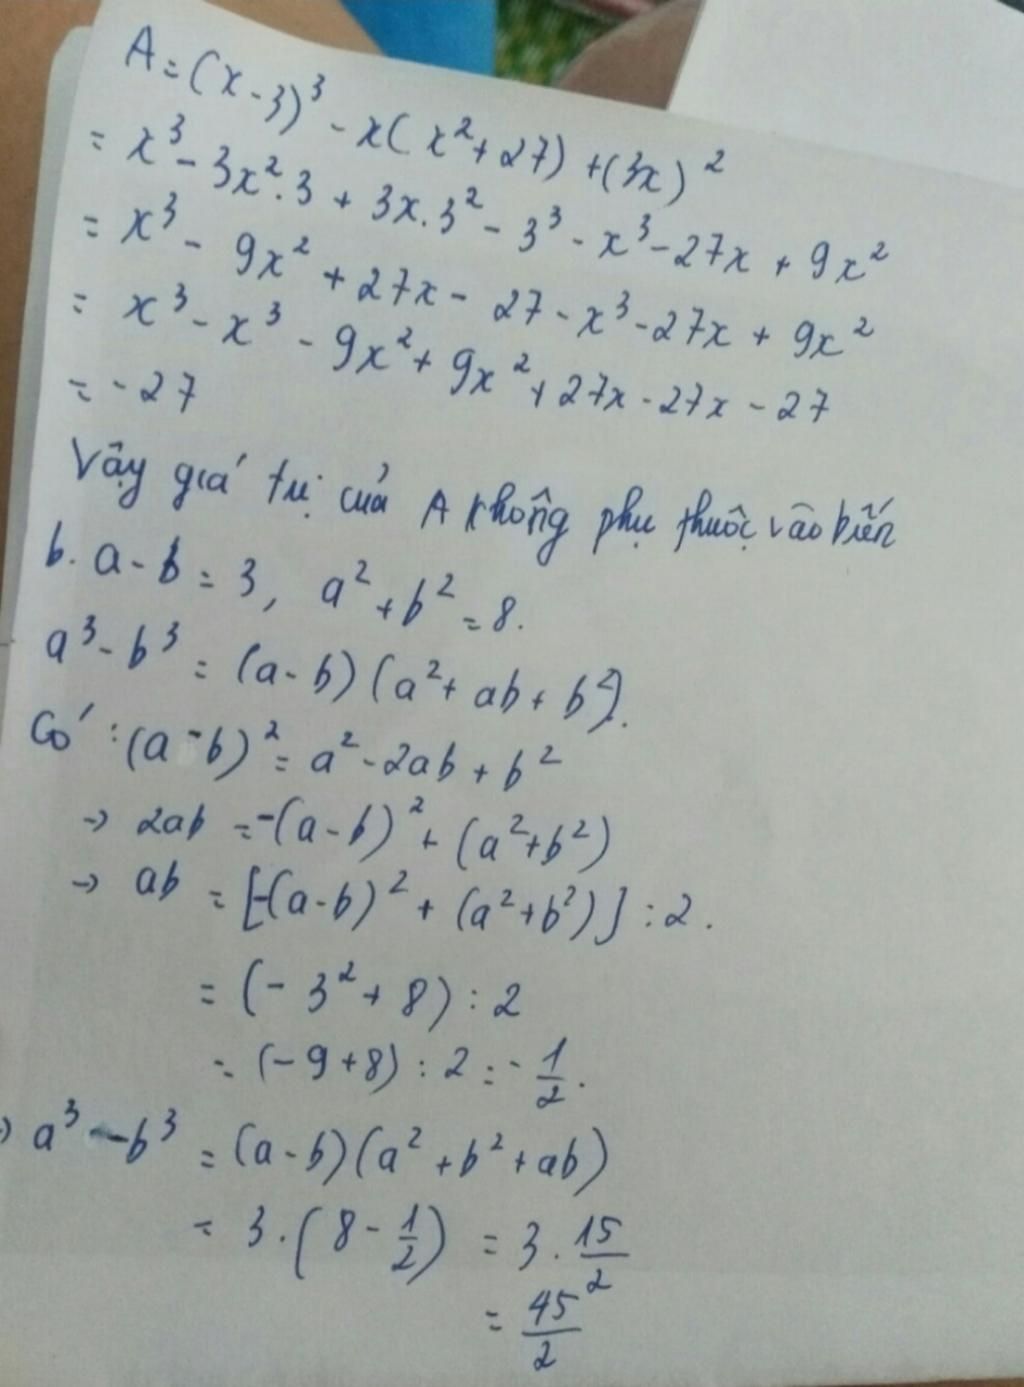 A = (x - 3)³ - x(x² + 27) + (3x)²
= x³ - 3x².3 + 3x.3² - 3³ - x³ - 27x + 9x²
= x³ - 9x² + 27x - 27 - x³ - 27x + 9x²
= x³ - x³ - 9x² + 9x² + 27x - 27x - 27
= -27
Vậy giá trị của A không phụ thuộc vào biến
b. a - b = 3, a² + b² = 8.
a³ - b³ = (a - b)(a² + ab + b²).
Có : (a - b)² = a² - 2ab + b²
→ 2ab = -(a - b)² + (a² + b²)
→ ab = [-(a - b)² + (a² + b²)] : 2.
= (- 3² + 8) : 2
= (- 9 + 8) : 2 = - 1/2.
→ a³ - b³ = (a - b)(a² + b² + ab)
= 3.(8 - 1/2) = 3. 15/2
= 45/2